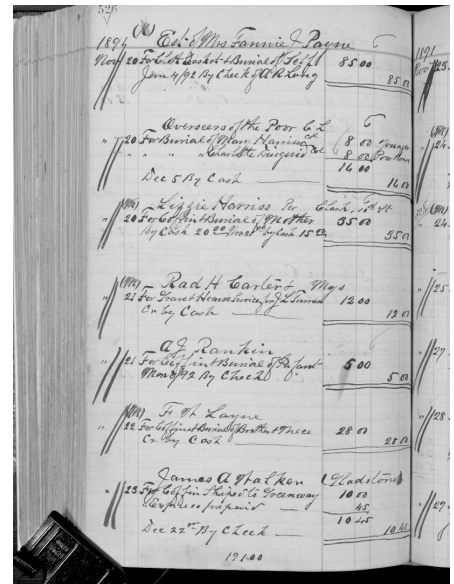 526
1891 (W) Est of Mrs Fannie J Payne
Nov 20 For Cloth Casket & Burial of Self 85 00
Jan 4/92 By Check of A R Long 85 00
Overseers of the Poor C L
" 20 For Burial of Mary Harriss col 8 00
" " " Charlotte col 8 00 Poor House
16 00
Dec 5 By Cash 16 00
(W) Lizzie Harriss Per Clark St
" 20 For Coffin & Burial of Mother 35 00
By Cash 20 00 By Cash 15 00 35 00
(W) Rad H Carter & Mays
" 21 For Transet Hearse Service for J L 12 00
Cr by Cash 12 00
A J Rankin
" 21 For Coffin & Burial of Infant 5 00
/92 By Check 5 00
(W) F W Layne
" 22 For Coffin & Burial of Brothers Niece 28 00
Cr by Cash 28 00
James A Walker (Gladstone)
" 23 For Coffin Shiped to Greenway 10 00
Express prepaid 45
10 45
Dec 22nd By Check 10 45
191.00
1891
Nov 23
(W)
" 24
(W)
" 24
" 25
" 27
" 28
" 29